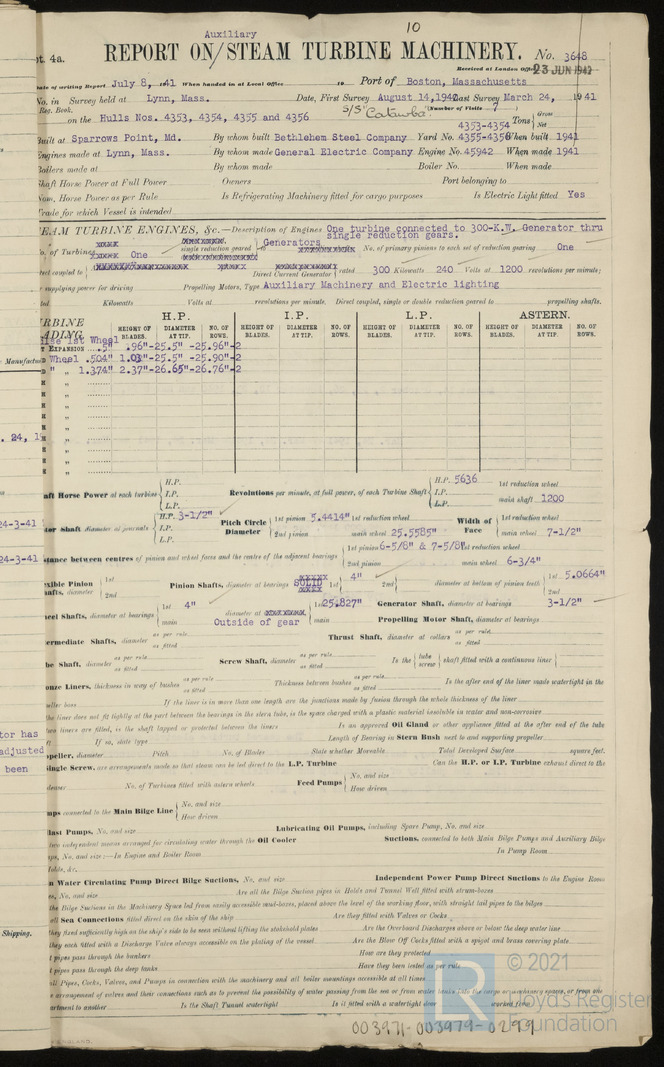 10
Auxiliary
pt. 4a.
REPORT ON/STEAM TURBINE MACHINERY.
No. 3648
Received at London Office 23 JUN 1942
Date of writing Report July 8, 1941 When handed in at Local Office 19 Port of Boston, Massachusetts
No. in Survey held at Lynn, Mass. Date, First Survey August 14, 1940 Last Survey March 24, 1941
Reg. Book. S/S "Catawba" (Number of Visits 7
on the Hulls Nos. 4353, 4354, 4355 and 4356 4353-4354 Tons Gross Net
Built at Sparrows Point, Md. By whom built Bethlehem Steel Company Yard No. 4355-4356 When built 1941
Engines made at Lynn, Mass. By whom made General Electric Company Engine No. 45942 When made 1941
Boilers made at By whom made Boiler No. When made
Shaft Horse Power at Full Power Owners Port belonging to
Nom. Horse Power as per Rule Is Refrigerating Machinery fitted for cargo purposes Is Electric Light fitted Yes
Trade for which Vessel is intended
STEAM TURBINE ENGINES, &c.—Description of Engines One turbine connected to 300-K.W. Generator thru
single reduction gears.
No. of Turbines One single reduction geared to Generators No. of primary pinions to each set of reduction gearing One
direct coupled to Direct Current Generator rated 300 Kilowatts 240 Volts at 1200 revolutions per minute;
supplying power for driving Propelling Motors, Type Auxiliary Machinery and Electric lighting
rated Kilowatts Volts at revolutions per minute. Direct coupled, single or double reduction geared to propelling shafts.
TURBINE BLADING. H.P. I.P. L.P. ASTERN.
HEIGHT OF BLADES. DIAMETER AT TIP. NO. OF ROWS. HEIGHT OF BLADES. DIAMETER AT TIP. NO. OF ROWS. HEIGHT OF BLADES. DIAMETER AT TIP. NO. OF ROWS. HEIGHT OF BLADES. DIAMETER AT TIP. NO. OF ROWS.
1st Wheel
EXPANSION .5" .96"-25.5" -25.96"-2
Wheel .504" 1.03"-25.5" -25.90"-2
" 1.374" 2.37"-26.65"-26.76"-2
Shaft Horse Power at each turbine H.P. I.P. L.P. Revolutions per minute, at full power, of each Turbine Shaft H.P. 5636 I.P. L.P. 1st reduction wheel main shaft 1200
Rotor Shaft diameter at journals H.P. 3-1/2" I.P. L.P. Pitch Circle Diameter 1st pinion 5.4414" 1st reduction wheel 2nd pinion main wheel 25.5585" Width of Face 1st reduction wheel main wheel 7-1/2"
Distance between centres of pinion and wheel faces and the centre of the adjacent bearings 1st pinion 6-5/8" & 7-5/8" 1st reduction wheel 2nd pinion main wheel 6-3/4"
Flexible Pinion Shafts, diameter 1st 2nd Pinion Shafts, diameter at bearings SOLID 1st 4" 2nd diameter at bottom of pinion teeth 1st 5.0664" 2nd
Wheel Shafts, diameter at bearings 1st 4" main diameter at Outside of gear 1st 25.827" main Generator Shaft, diameter at bearings 3-1/2"
Propelling Motor Shaft, diameter at bearings
Intermediate Shafts, diameter as per rule as fitted Thrust Shaft, diameter at collars as per rule as fitted
Tube Shaft, diameter as per rule as fitted Screw Shaft, diameter as per rule as fitted Is the tube screw shaft fitted with a continuous liner
Bronze Liners, thickness in way of bushes as per rule as fitted Thickness between bushes as per rule as fitted Is the after end of the liner made watertight in the
propeller boss If the liner is in more than one length are the junctions made by fusion through the whole thickness of the liner
If the liner does not fit tightly at the part between the bearings in the stern tube, is the space charged with a plastic material insoluble in water and non-corrosive
If two liners are fitted, is the shaft lapped or protected between the liners Is an approved Oil Gland or other appliance fitted at the after end of the tube
shaft If so, state type Length of Bearing in Stern Bush next to and supporting propeller
Propeller, diameter Pitch No. of Blades State whether Moveable Total Developed Surface square feet.
If Single Screw, are arrangements made so that steam can be led direct to the L.P. Turbine Can the H.P. or I.P. Turbine exhaust direct to the
Condenser No. of Turbines fitted with astern wheels Feed Pumps No. and size How driven
Pumps connected to the Main Bilge Line No. and size How driven
Ballast Pumps, No. and size Lubricating Oil Pumps, including Spare Pump, No. and size
Are two independent means arranged for circulating water through the Oil Cooler Suctions, connected to both Main Bilge Pumps and Auxiliary Bilge
Pumps, No. and size:—In Engine and Boiler Room In Pump Room
In Holds, &c.
Main Water Circulating Pump Direct Bilge Suctions, No. and size Independent Power Pump Direct Suctions to the Engine Room
Bilges, No. and size Are all the Bilge Suction pipes in Holds and Tunnel Well fitted with strum-boxes
Are the Bilge Suctions in the Machinery Space led from easily accessible mud-boxes, placed above the level of the working floor, with straight tail pipes to the bilges
Are all Sea Connections fitted direct on the skin of the ship Are they fitted with Valves or Cocks
Are they fixed sufficiently high on the ship's side to be seen without lifting the stokehold plates Are the Overboard Discharges above or below the deep water line
Are they each fitted with a Discharge Valve always accessible on the plating of the vessel Are the Blow Off Cocks fitted with a spigot and brass covering plate
What pipes pass through the bunkers How are they protected
What pipes pass through the deep tanks Have they been tested as per rule
Are all Pipes, Cocks, Valves, and Pumps in connection with the machinery and all boiler mountings accessible at all times
Is the arrangement of valves and their connections such as to prevent the possibility of water passing from the sea or from water tanks into the cargo or machinery spaces, or from one
compartment to another Is the Shaft Tunnel watertight Is it fitted with a watertight door worked from
003971-003979-0299
© 2021
LR
Lloyd's Register
Foundation
Manufact
. 24, 19
24-3-41
24-3-41
tor has
adjusted
been
Shipping.